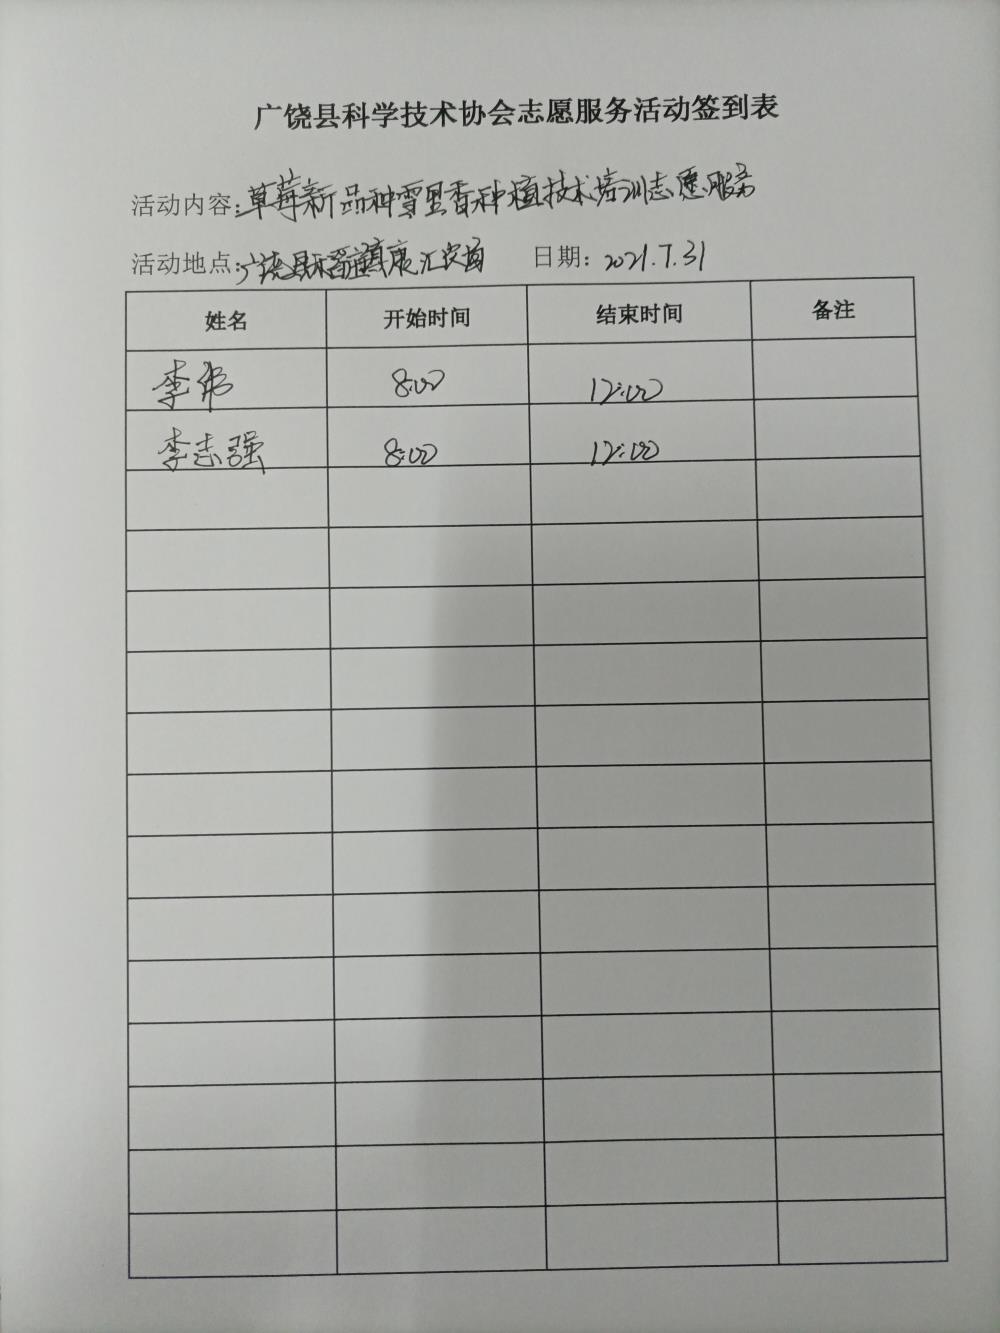 广饶县科学技术协会志愿服务活动签到表
活动内容:草莓新品种雪里香种植技术培训志愿服务
活动地点:广饶县稻庄镇康汇农场 日期: 2021.7.31
姓名 开始时间 结束时间 备注
李 8:00 12:00
李志强 8:00 12:00